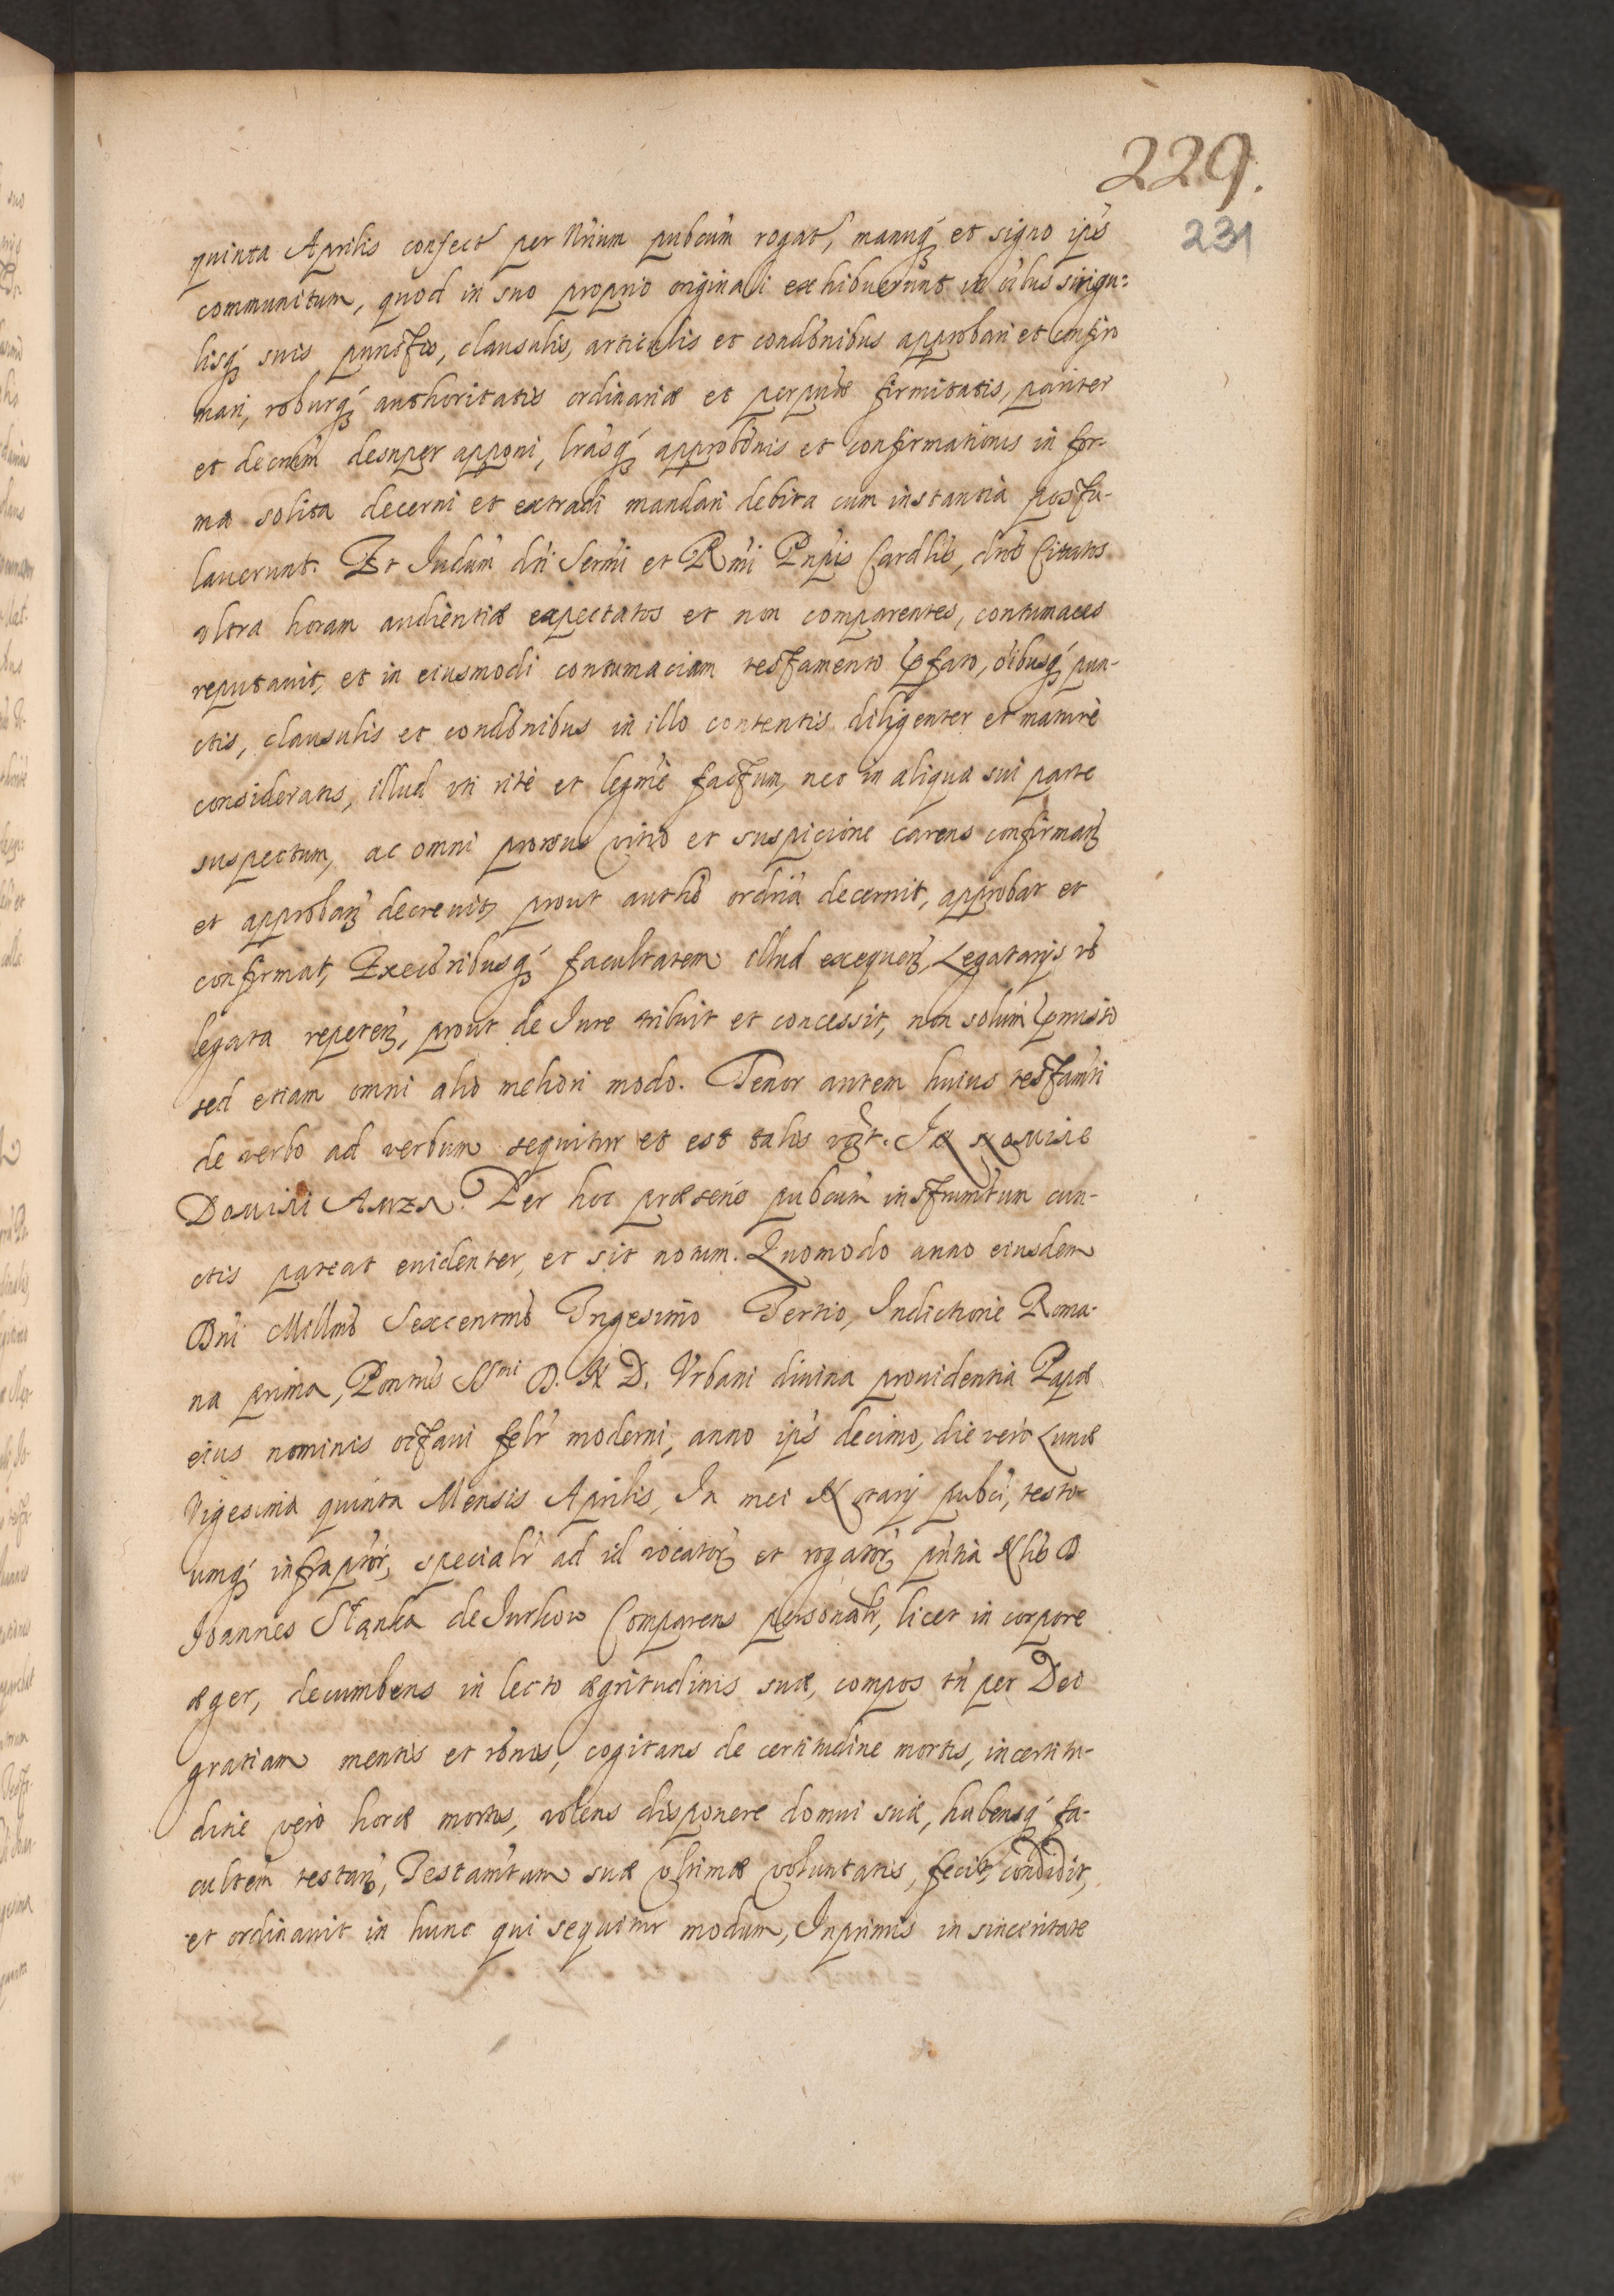 229.
231
quinta Aprilis confect per Nrium pubcum rogat, manuq́ et signo ips
communitum, quod in suo proprio originali exhibuerunt in oibus singu=
lisq́ suis punctis, clausulis, articulis et condonibus approbari et confir
mari, roburq́ authoritatis ordinariæ et perpuæ firmitatis, pariter
et decrum desuper apponi, lrasq́ approbonis et confirmationis in for-
ma solita decerni et extradi mandari debita cum instantia postu-
lauerunt. Et Iudum dni Sermi et Rmi Pnpis Cardlis, dnos Citatos
vltra horam audientiæ expectatos et non comparentes, contumaces
reputauit, et in eiusmodi contumaciam testamento pfato, oibusq́ pun-
ctis, clausulis et condonibus in illo contentis diligenter et maturè
considerans, illud vti ritè et legmè factum, nec in aliqua sui parte
suspectum, ac omni prorsus vitio et suspicione carens confirmanȝ
et approbanȝ decreuit, prout autho ordria decernit, approbat et
confirmat, Execoribusq́ facultatem illud exequenȝ Legatarijs vo
legata repetenȝ, prout de Iure tribuit et concessit, non solum pmisso
sed etiam omni alio meliori modo. Tenor autem huius testamti
de verbo ad verbum sequitur et est talis vȝt. In nomine
Domini Amen. Per hoc præsens pubcum instrumtum cun-
ctis pateat euidenter, et sit notum. Quomodo anno eiusdem
Dni Millmo Sexcentmo Trigesimo Tertio, Indictione Roma-
na prima, Pontus SSmi D. N D. Vrbani diuina prouidentia Papæ
eius nominis octaui felr moderni, anno ips decimo, die verò Lunæ
Vigesima quinta Mensis Aprilis, In mei Notarij pubci, testi-
umq́ infraptor, specialr ad id vocatorȝ et rogatorȝ pntia Nlis D
Ioannes Stanka de Iurkow Comparens personalr, licet in corpore
æger, decumbens in lecto ægritudinis suæ, compos tn per Dei
gratiam mentis et ronis, cogitans de certitudine mortis, incertitu-
dine verò horæ mortis, volens disponere domui suæ, habensq́ fa-
cultem testanȝ, Testamtum suæ vltimæ voluntatis, fecit, condidit,
et ordinauit in hunc qui sequitur modum, Inprimis in sinceritate